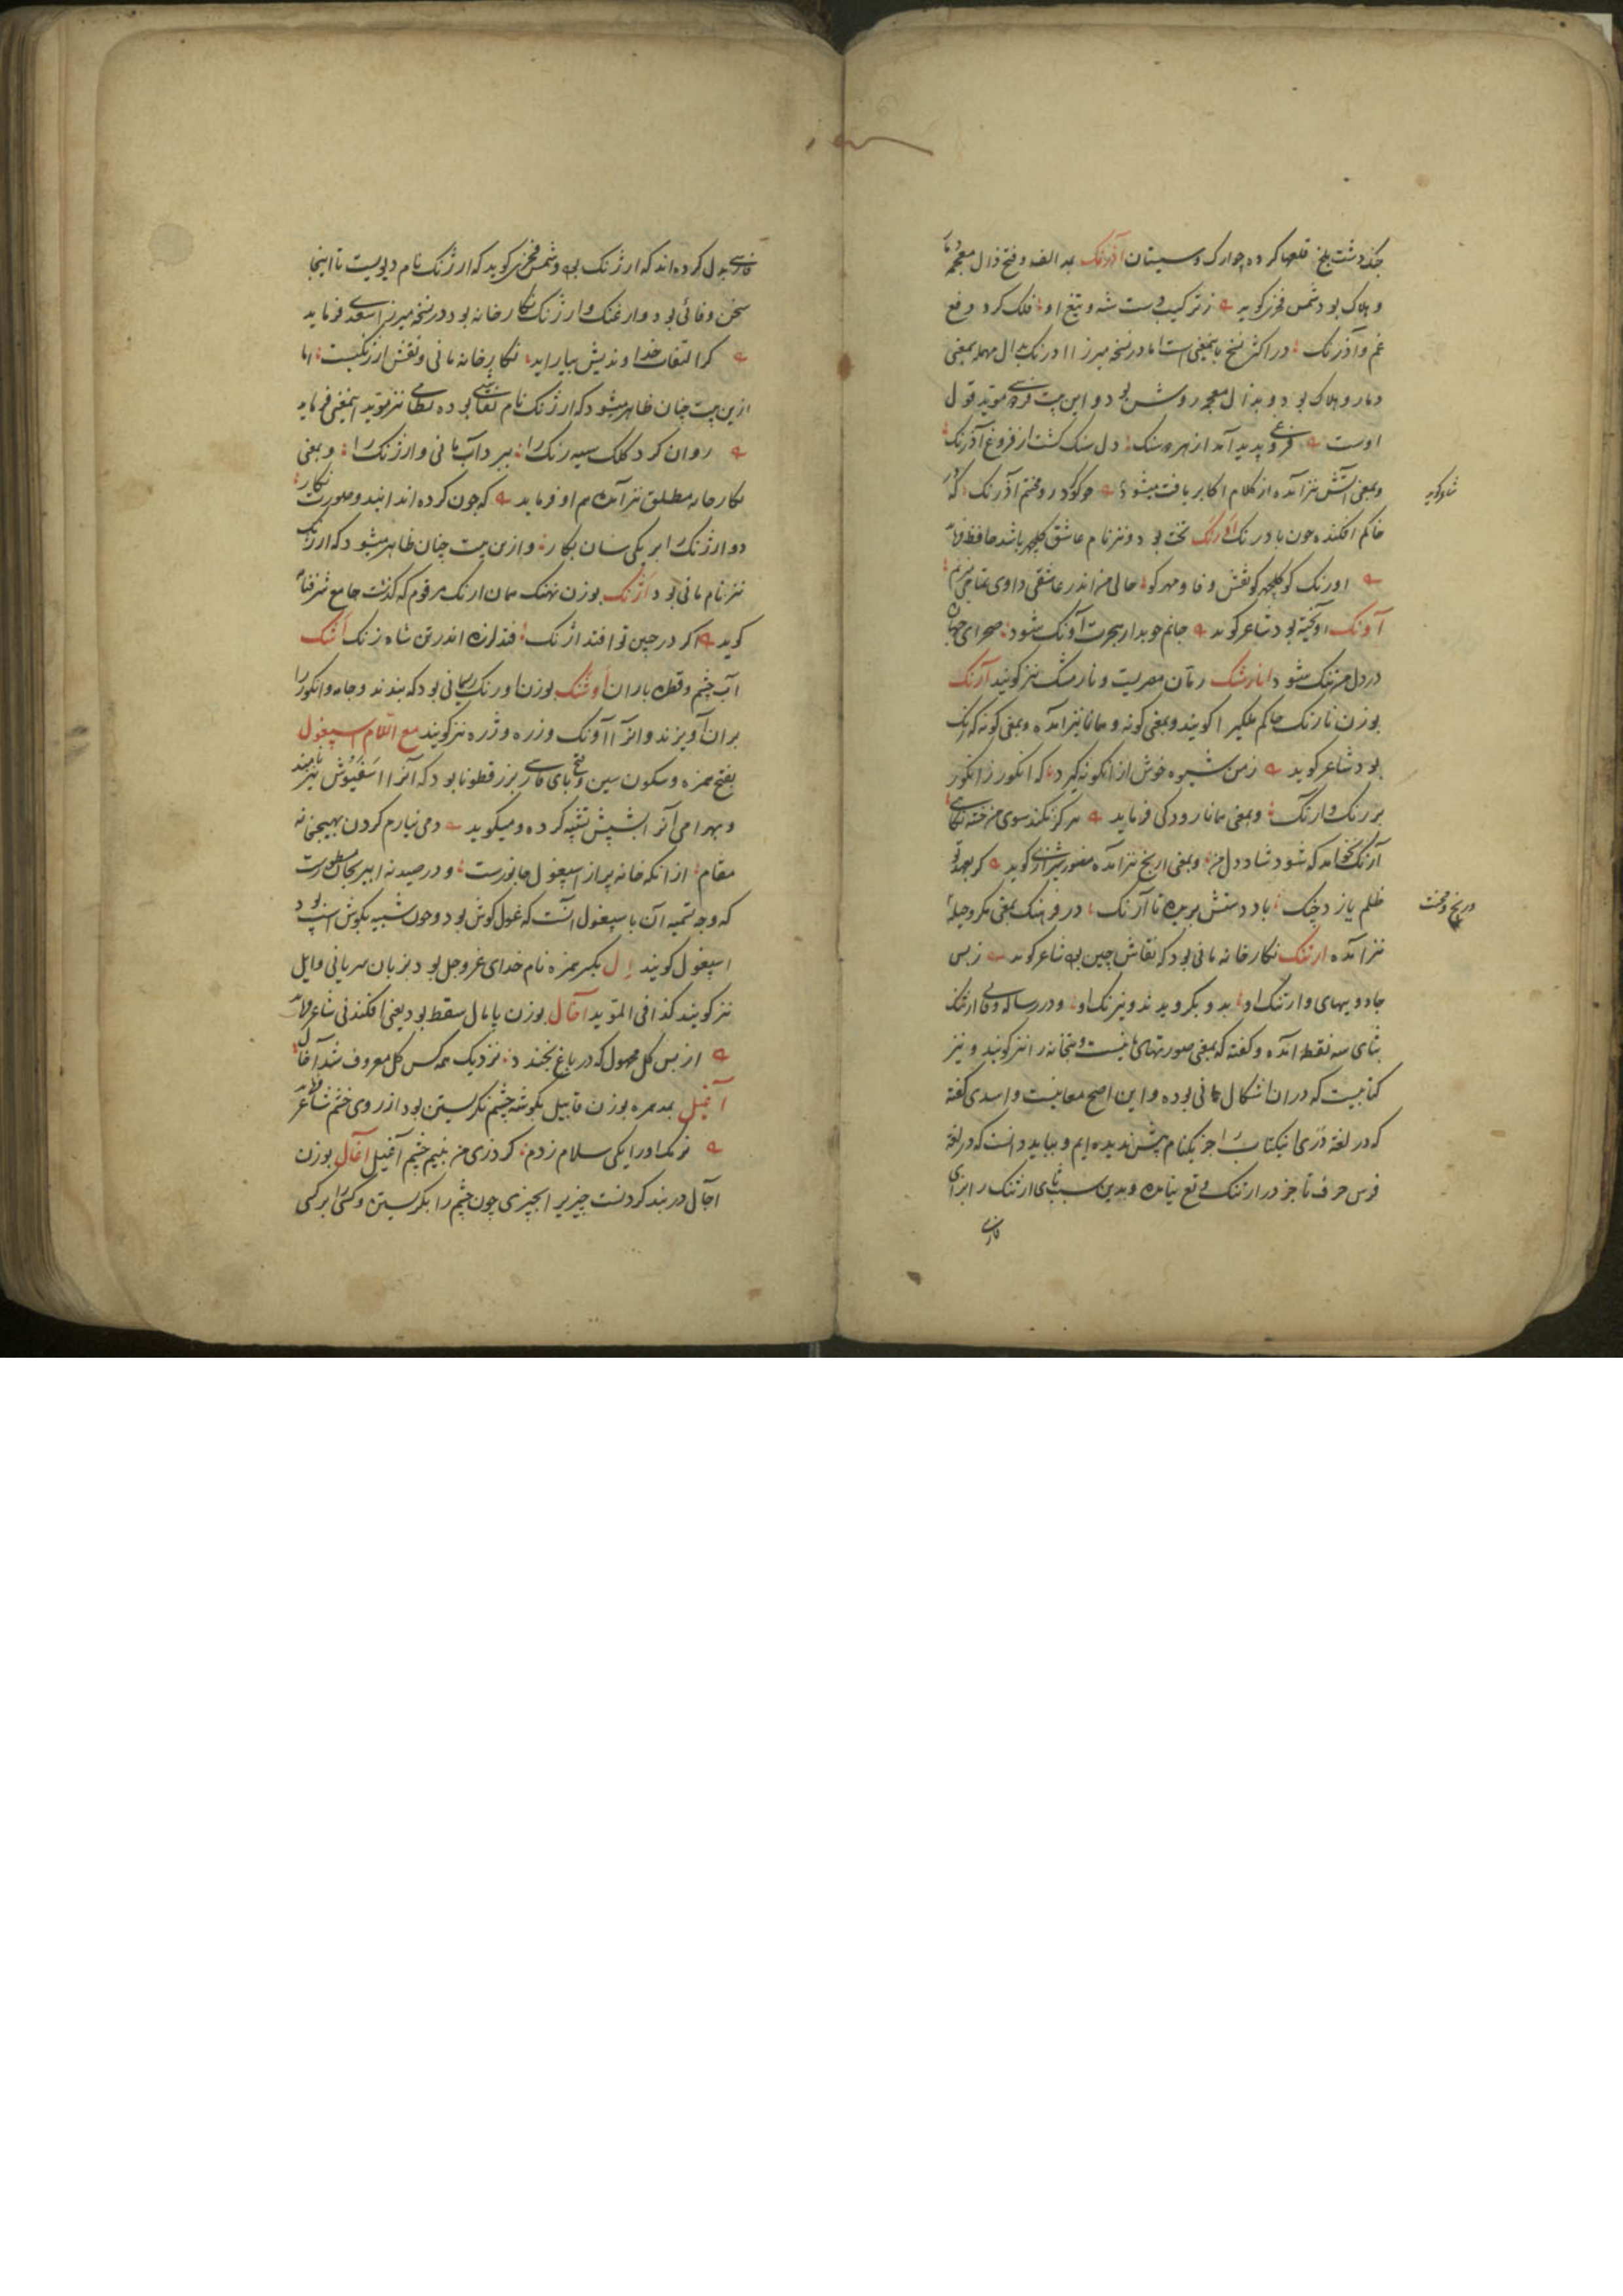 بلخ قلعها کرده چو ارک و سیستان آذرنک بمد الف و فتح ذال معجمه
و هلاک بود شمس فخری کوید ز ترکیب شه و تیغ او فلک کرد رفع
غم و آذرنک در اکثر نسخ باینمعنی است اما در نسخه میرزا ادرنک بدال مهمله بمعنی
دمار و هلاک بود و بذال معجمه روشن بود و این بیت مؤید قول
اوست فروغی پدید آمد از هر دو سنک دل سنک کشت از فروغ آذرنک
و بمعنی آتش نیز آمده از کلام اکابر یافت میشود چو آذرنک
شاعر کوید
خاکم افکنده چون بادرنک اورنک تخت بود و نیز نام عاشق کلچهر باشد حافظ
اورنک کو کلچهر کو نقش وفا و مهر کو حالی من اندر عاشقی داو تمامی میزنم
آونک آویخته بود شاعر کوید جانم چو بدار هجرت آونک شود صحرای جهان
در دل من تنک شود انارمشک رمان مصریست و نارمشک نیز کویند آرنک
بوزن نارنک حاکم ملکی را کویند و بمعنی کونه و همانا نیز آمده و بمعنی کونه که رنک
بود شاعر کوید ز من شیوه خوش از انکونه کیرد که انکور ز انکور
برد رنک و ارنک و بمعنی همانا رودکی فرماید هرکز نکند سوی من خسته نکاهی
آرنک نخواهد که شود شاد دل من و بمعنی آرنج نیز آمده منصور شیرازی کوید
ظلم یازد چنک باد دستش بریده تا آرنک در فرهنک بمعنی مکر و حیله
و رنج و محنت
نیز آمده ارتنک نکارخانه مانی بود که نقاش چین بود شاعر کوید ز بس
جادویهای و ارتنک او بدو بکرویدند و نیرنک او و در رساله وفائی ارثنک
بثای سه نقطه آمده و کفته که بمعنی صورتهای مانیست و بتخانه را نیز کویند و نیز
کتابیست که در ان اشکال مانی بوده و این اصح معانیست و اسدی کفته
که در لغة دری این کتاب را جز یکنام پیش ندیده ایم و بباید دانست که در لغة
فرس حرف ثا جز در ارثنک واقع نیامده و بدین سبب ثای ارثنک را بزای
فارسی
فارسی بدل کرده اند که ارژنک بود و شمس فخری کوید که ارژنک نام دیویست تا اینجا
سخن وفائی بود و ارغنک و ارژنک نکارخانه بود در نسخه میرزا سعدی فرماید
کر التفات خداوندیش بیاراید نکارخانه مانی و نقش ارژنکیست اما
ازین بیت چنان ظاهر میشود که ارژنک نام نقاشی بوده نظامی نیز مؤید اینمعنی فرماید
روان کرد کلک سیه رنک را ببرد آب مانی و ارژنک را و بمعنی
نکارخانه مطلق نیز آمده هم او فرماید که چون کرده اند این دو صورت نکار
دو ارژنک را بر یکی سان نکار و ازین بیت چنان ظاهر میشود که ارژنک
نیز نام مانی بود اژنک بوزن نهنک همان ارنک مرقوم که کذشت جامع
کوید اکر در چین تو افتد اژنک فتد لرزه اندر تن شاه زنک اشک
آب چشم و قطره باران اوشنک بوزن اورنک ریسمانی بود که بندند و جامه و انکور را
بران آویزند و انرا آونک و زره و ژره نیز کویند مع اللام اسپغول
بفتح همزه و سکون سین و فتح بای فارسی بزر قطونا بود که آنرا اسفیوش نیز نامند
و بهرامی آنرا بشپش تشبیه کرده و میکوید دمی نیارم کردن بهیچ
مقام از انکه خانه پر از اسپغول جانورست و در صیدنه ابی ریحان مسطورست
که وجه تسمیه آن باسپغول آنست که غول کوش بود و چون شبیه بکوش اسپ بود
اسپغول کویند ال بکسر همزه نام خدای عز و جل بود بزبان سریانی و ایل
نیز کویند کذا فی المؤید آخال بوزن پامال سقط بود یعنی افکندنی شاعر
از بس کل مجهول که در باغ بخندد نزدیک همه کس کل معروف شد آخال
آغیل بمد همزه بوزن قابیل بکوشه چشم نکریستن بود از روی خشم شاعر
نرمک او را یکی سلام زدم کرد زی من نیم چشم آغیل آغال بوزن
آجال در بند کردنست چیزی را بچیزی چون چشم را بنکریستن و کسی را بر کسی